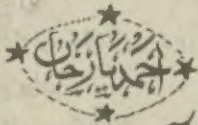 احمد یار خان